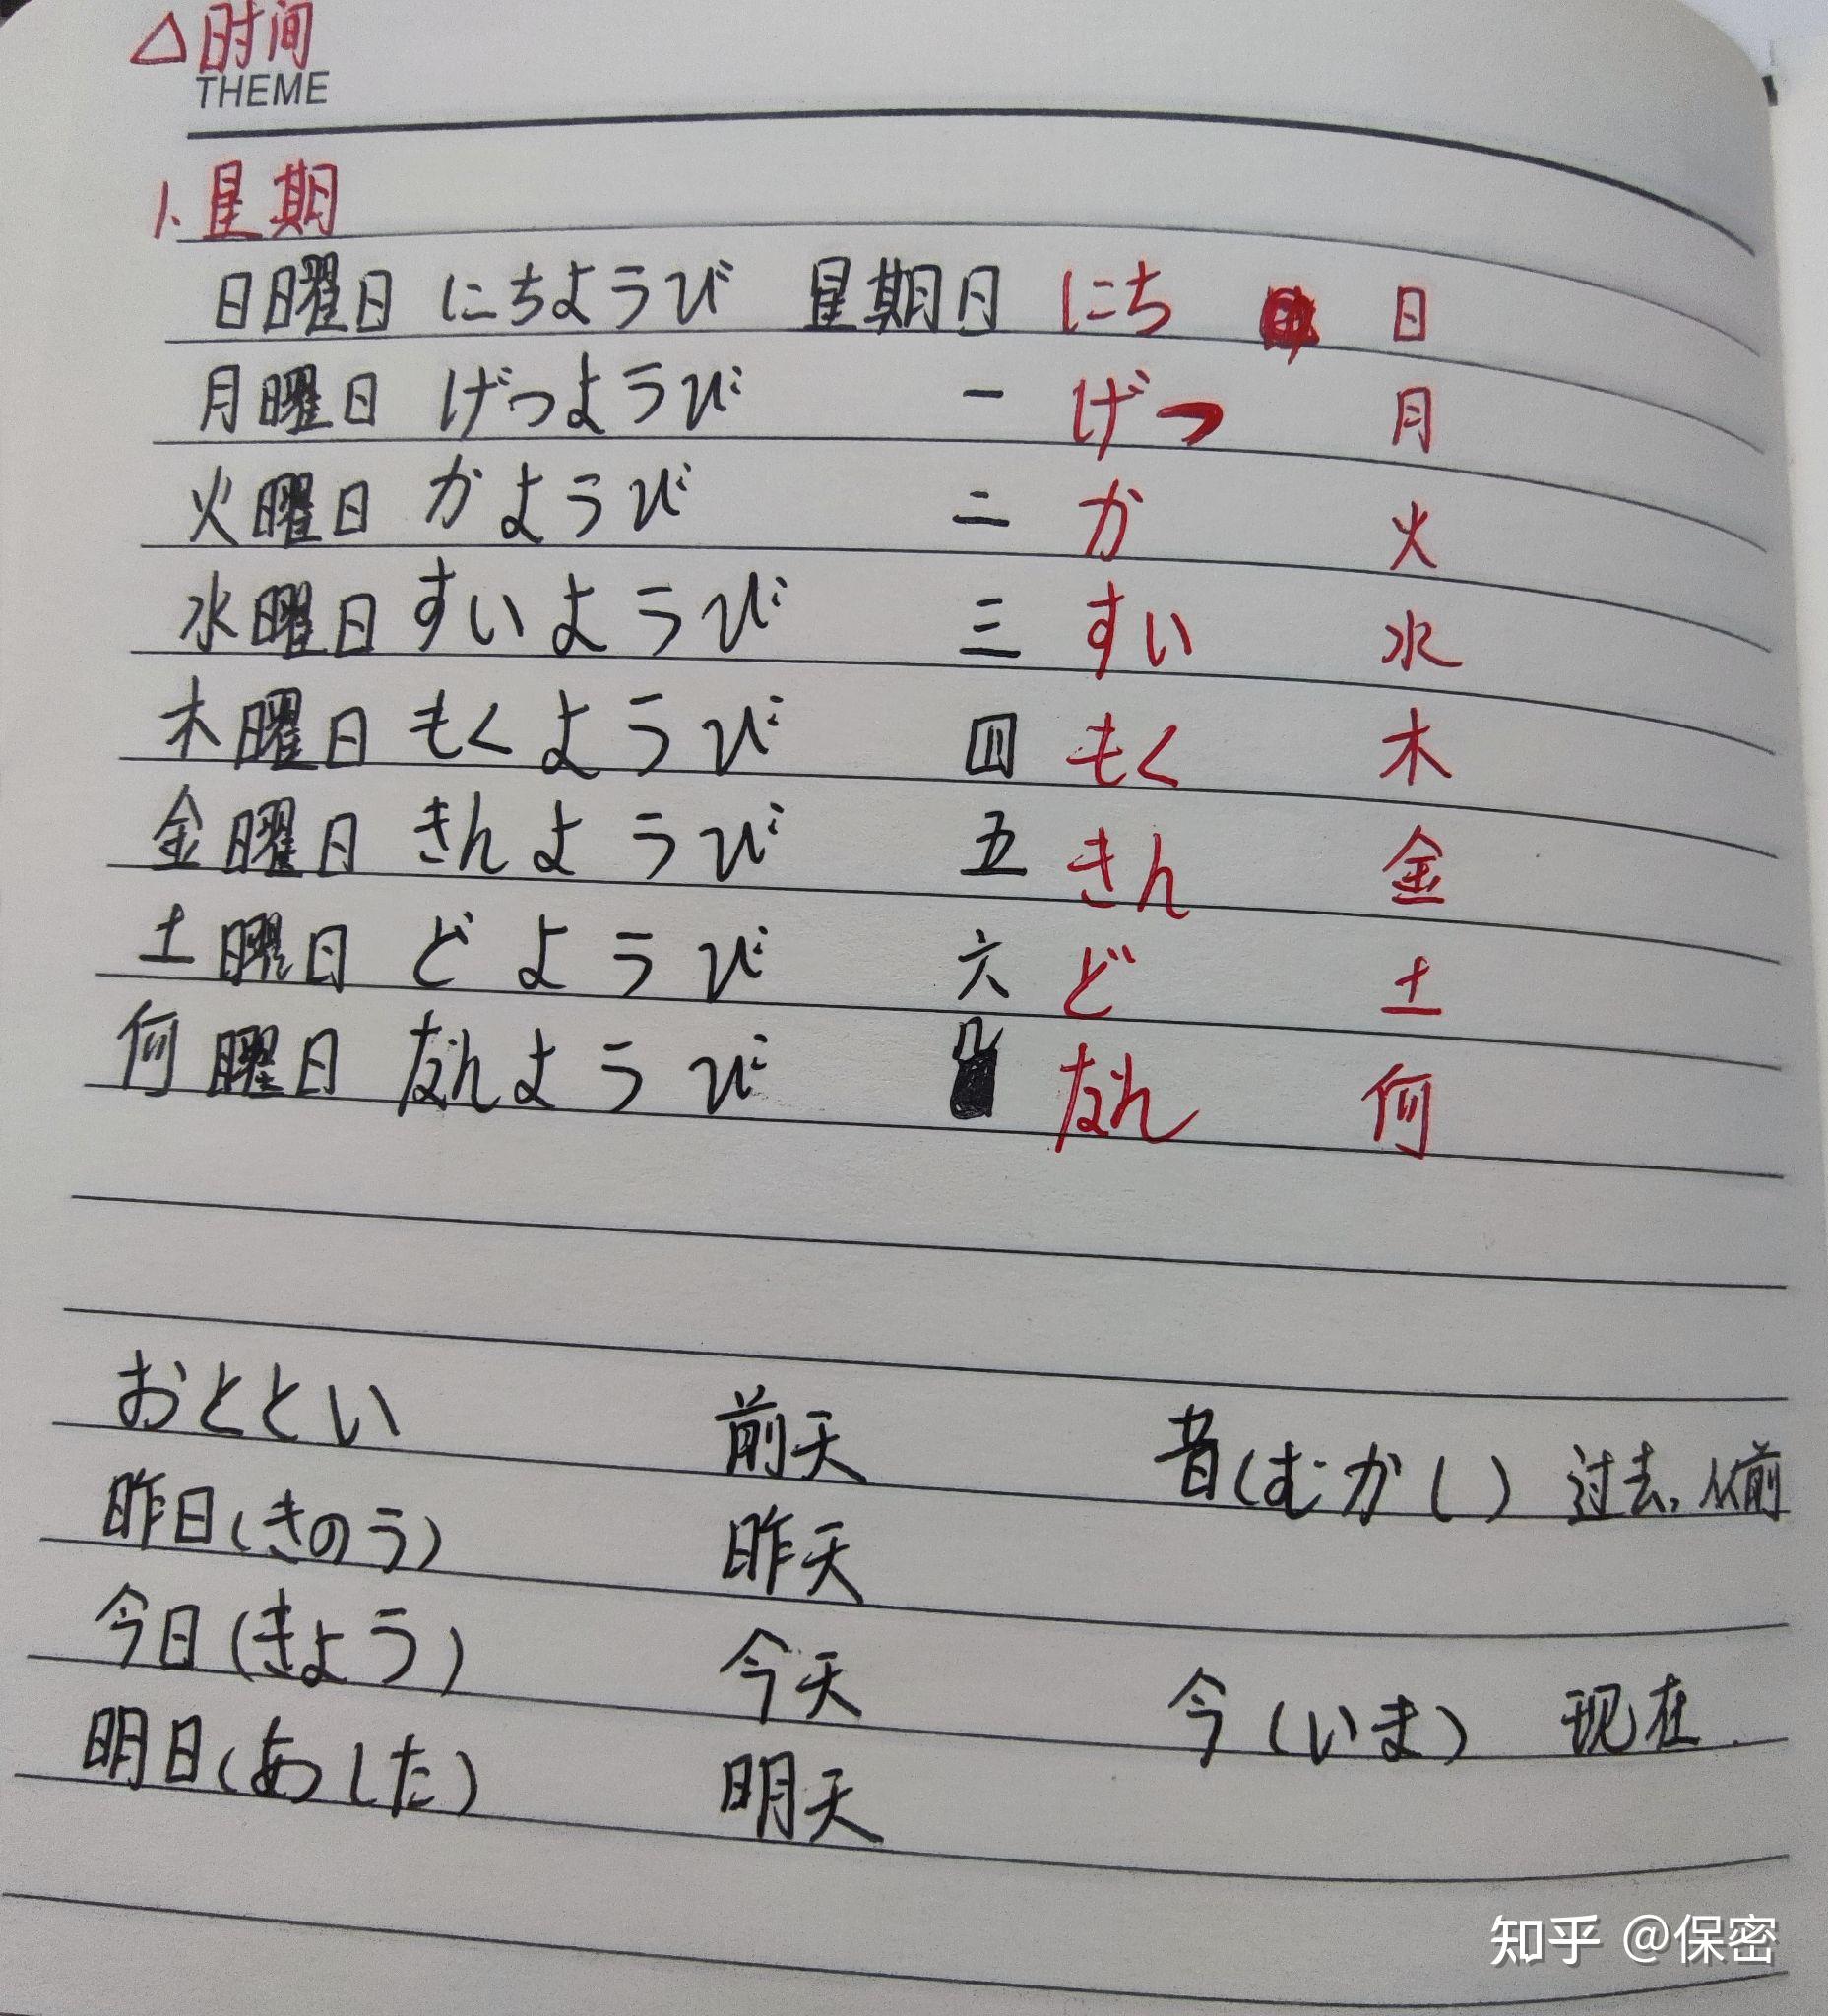 △时间
THEME
1、星期
日曜日 にちようび 星期日 にち 日
月曜日 げつようび 一 げつ 月
火曜日 かようび 二 か 火
水曜日 すいようび 三 すい 水
木曜日 もくようび 四 もく 木
金曜日 きんようび 五 きん 金
土曜日 どようび 六 ど 土
何曜日 なんようび 几 なん 何
おととい 前天 昔(むかし) 过去,从前
昨日(きのう) 昨天
今日(きょう) 今天 今(いま) 现在
明日(あした) 明天
知乎 @保密